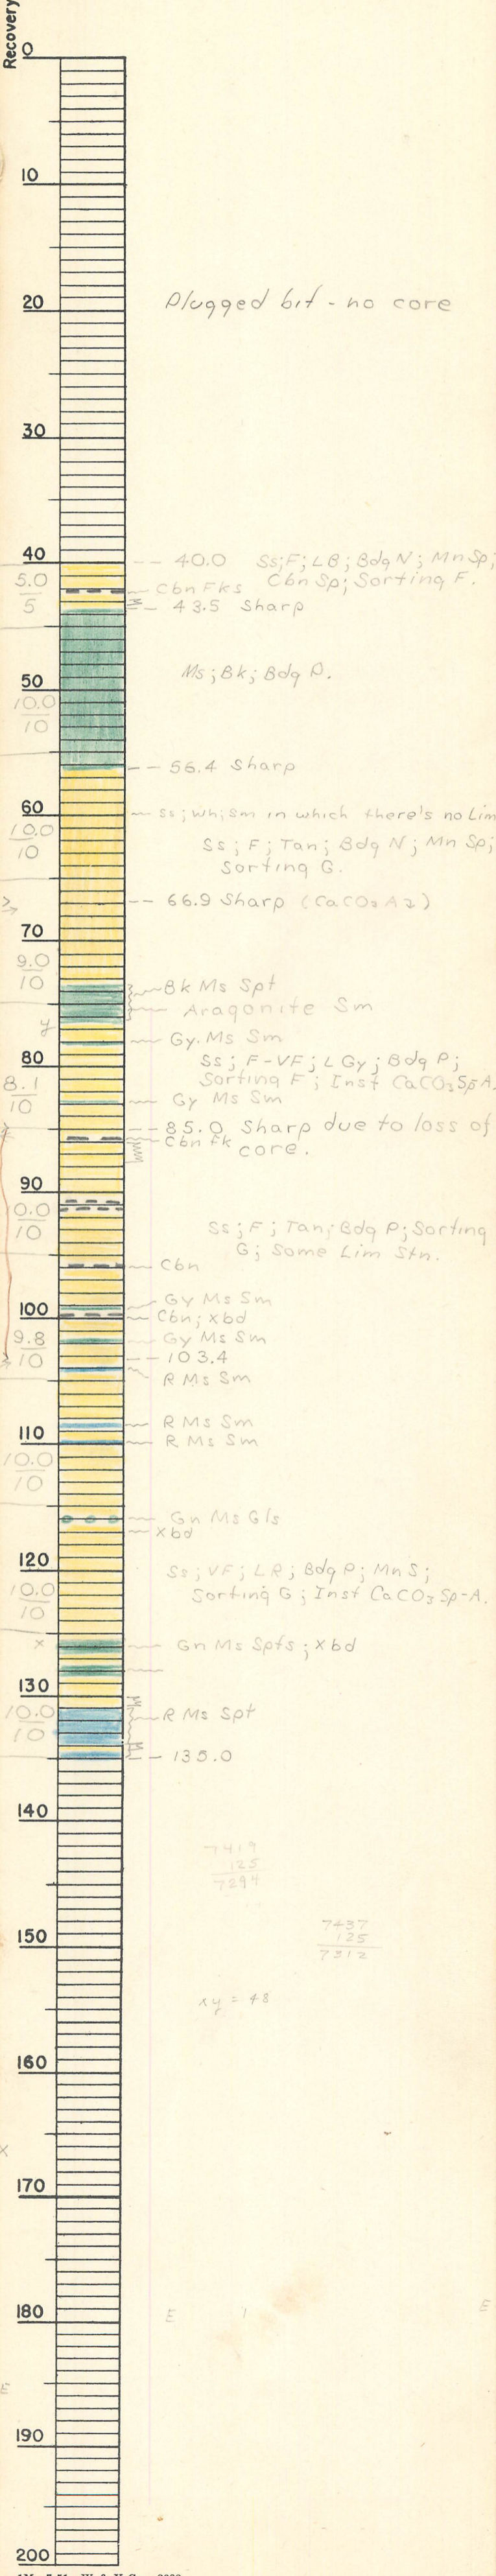 Recovery
0
10
20
Plugged bit - no core
30
40
-- 40.0 Ss;F; LB; Bdg N; Mn Sp;
5.0
5
Cbn Fks
Cbn Sp; Sorting F.
-- 43.5 Sharp
Ms; Bk; Bdg P.
50
10.0
10
-- 56.4 Sharp
60
Ss; Wh; Sm in which there's no Lim
10.0
10
Ss; F; Tan; Bdg N; Mn Sp;
Sorting G.
-- 66.9 Sharp
70
9.0
10
Bk Ms Spt
Aragonite Sm
y
Gy. Ms Sm
80
Ss; F-VF; L Gy; Bdg P;
8.1
10
Sorting F; Inst CaCO3 Sp A.
Gy Ms Sm
-- 85.0 Sharp due to loss of
Cbn fk
core.
90
0.0
10
Ss; F; Tan; Bdg P; Sorting
G; Some Lim Stn.
Cbn
Gy Ms Sm
100
Cbn; xbd
9.8
10
Gy Ms Sm
-- 103.4
R Ms Sm
R Ms Sm
110
R Ms Sm
10.0
10
Gn Ms Gls
xbd
120
Ss; VF; LR; Bdg P; Mn S;
10.0
10
Sorting G; Inst CaCO3 Sp-A.
x
Gn Ms Spts; xbd
130
10.0
10
R Ms Spt
-- 135.0
140
7419
125
7294
150
7437
125
7312
xy = 48
160
x
170
180
E
E
E
190
200